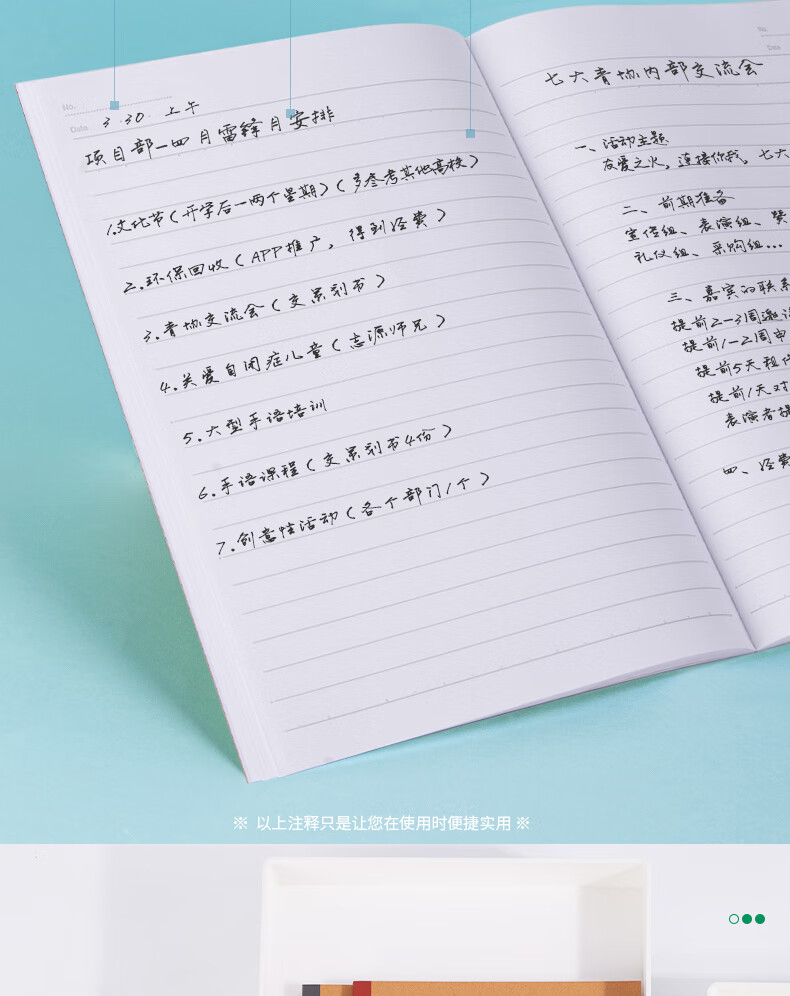 No.
Date 3.30. 上午
项目部—四月雷锋月安排
1.文化节(开学后一两个星期)(多参考其他高校)
2.环保回收(APP推广,得到经费)
3.青协交流会(交策划书)
4.关爱自闭症儿童(志源师兄)
5.大型手语培训
6.手语课程(交策划书4份)
7.创意性活动(各个部门1个)
No.
Date
七大青协内部交流会
一、活动主题
友爱之火,连接你我,七大
二、前期准备
宣传组、表演组、赞
礼仪组、采购组...
三、嘉宾的联系
提前2-3周邀请
提前1-2周申
提前5天租
提前1天对
表演者提
四、经费
※ 以上注释只是让您在使用时便捷实用 ※